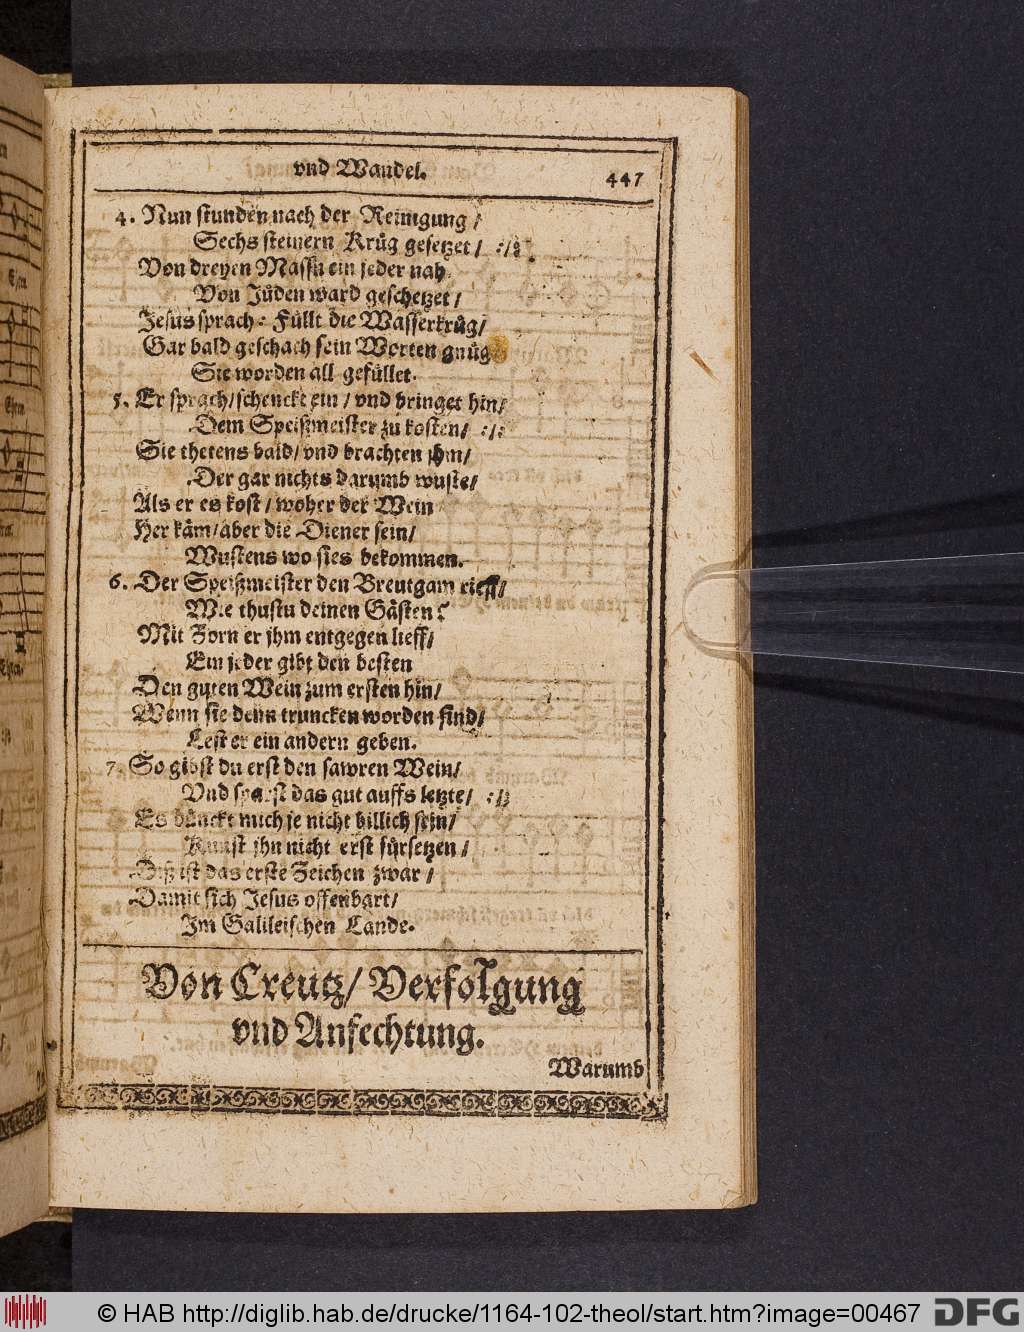 vnd Wandel.
447
4. Nun stunden nach der Reinigung /
Sechs steinern Krůg gesetzet / :/:
Von dreyen Massn ein jeder nah
Von Jůden ward geschetzet /
Jesus sprach: Fůllt die Wasserkrůg /
Gar bald geschach sein Worten gnůg
Sie worden all gefüllet.
5. Er sprach / schenckt ein / vnd bringet hin /
Dem Speißmeister zu kosten / :/:
Sie thetens bald / vnd brachten jhm /
Der gar nichts darumb wuste /
Als er es kost / woher der Wein
Her kåm / aber die Diener sein /
Wustens wo sies bekommen.
6. Der Speißmeister den Breutgam rieff /
Wie thustu deinen Gåsten?
Mit Zorn er jhm entgegen lieff /
Ein jeder gibt den besten
Den guten Wein zum ersten hin /
Wenn sie denn truncken worden sind /
Lest er ein andern geben.
7. So gibst du erst den sawren Wein /
Vnd sparst das gut auffs letzte / :/:
Es důnckt mich je nicht billich sein /
Kunst jhn nicht erst fůrsetzen /
Diß ist das erste Zeichen zwar /
Damit sich Jesus offenbart /
Im Galileischen Lande.
Von Creutz / Verfolgung
vnd Anfechtung.
Warumb
© HAB http://diglib.hab.de/drucke/1164-102-theol/start.htm?image=00467
DFG